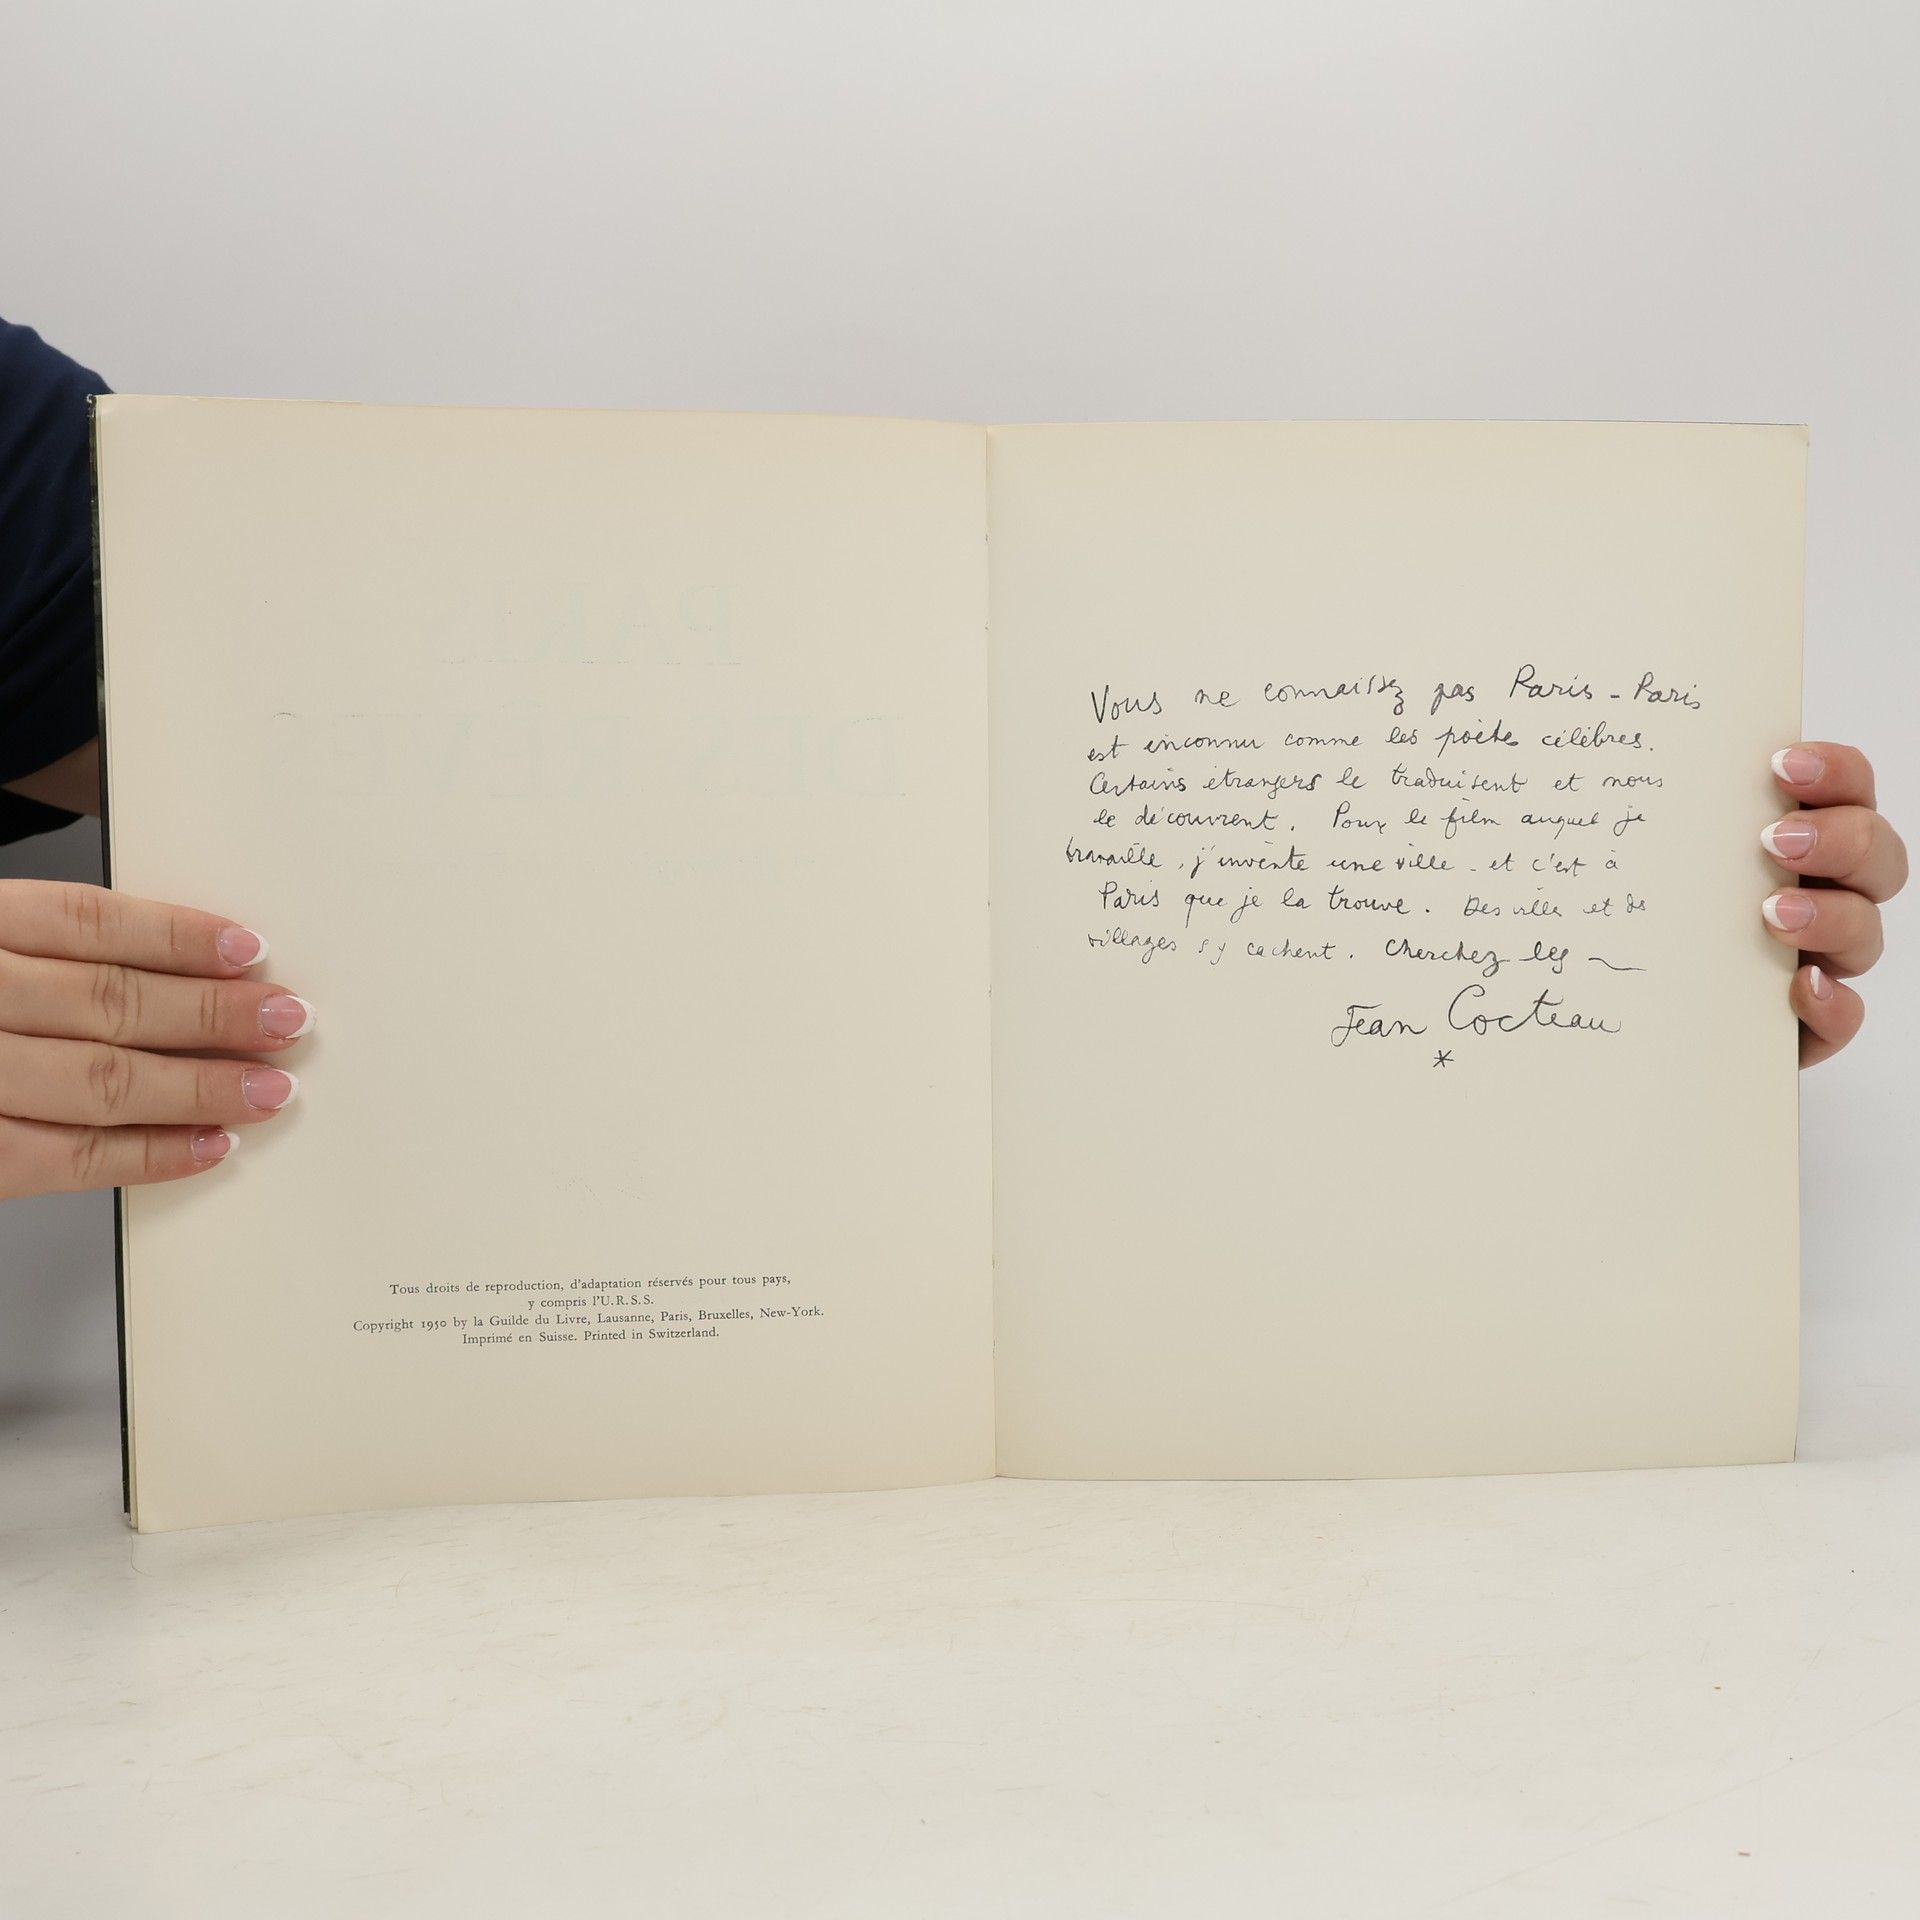 Tous droits de reproduction, d'adaptation réservés pour tous pays,
y compris l'U.R.S.S.
Copyright 1950 by la Guilde du Livre, Lausanne, Paris, Bruxelles, New-York.
Imprimé en Suisse. Printed in Switzerland.
Vous ne connaissez pas Paris - Paris
est inconnu comme les poètes célèbres.
Certains étrangers le traduisent et nous
le découvrent. Pour le film auquel je
travaille, j'invente une ville - et c'est à
Paris que je la trouve. Des villes et des
villages s'y cachent. Cherchez les
Jean Cocteau
*